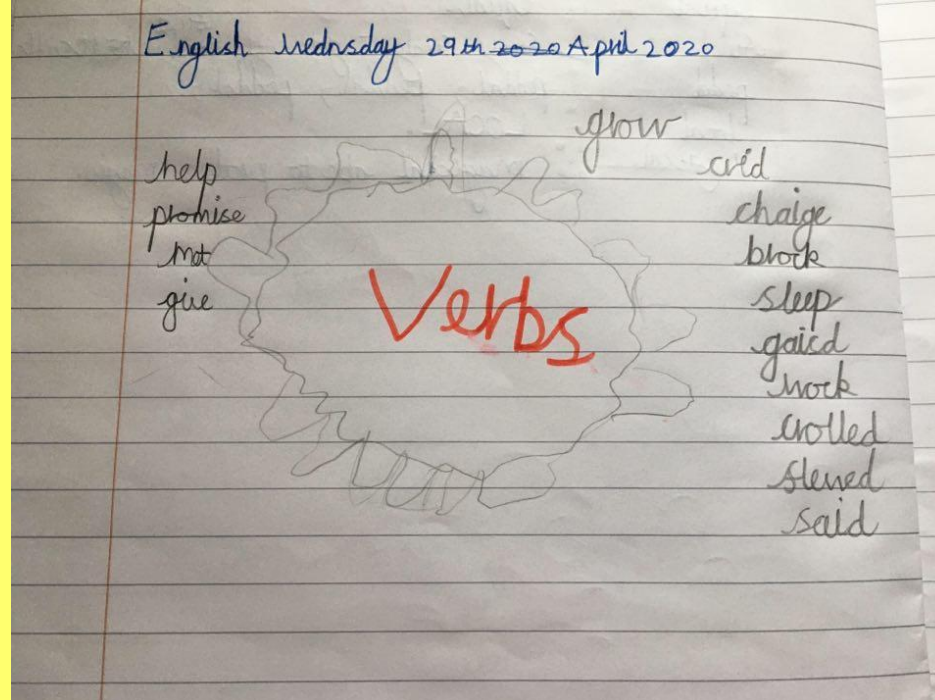 English Wednsday 29th 2020 April 2020
grow
help
promise
mot
give
Verbs
crid
chaige
brock
sleep
gaicd
wock
crolled
slewed
said